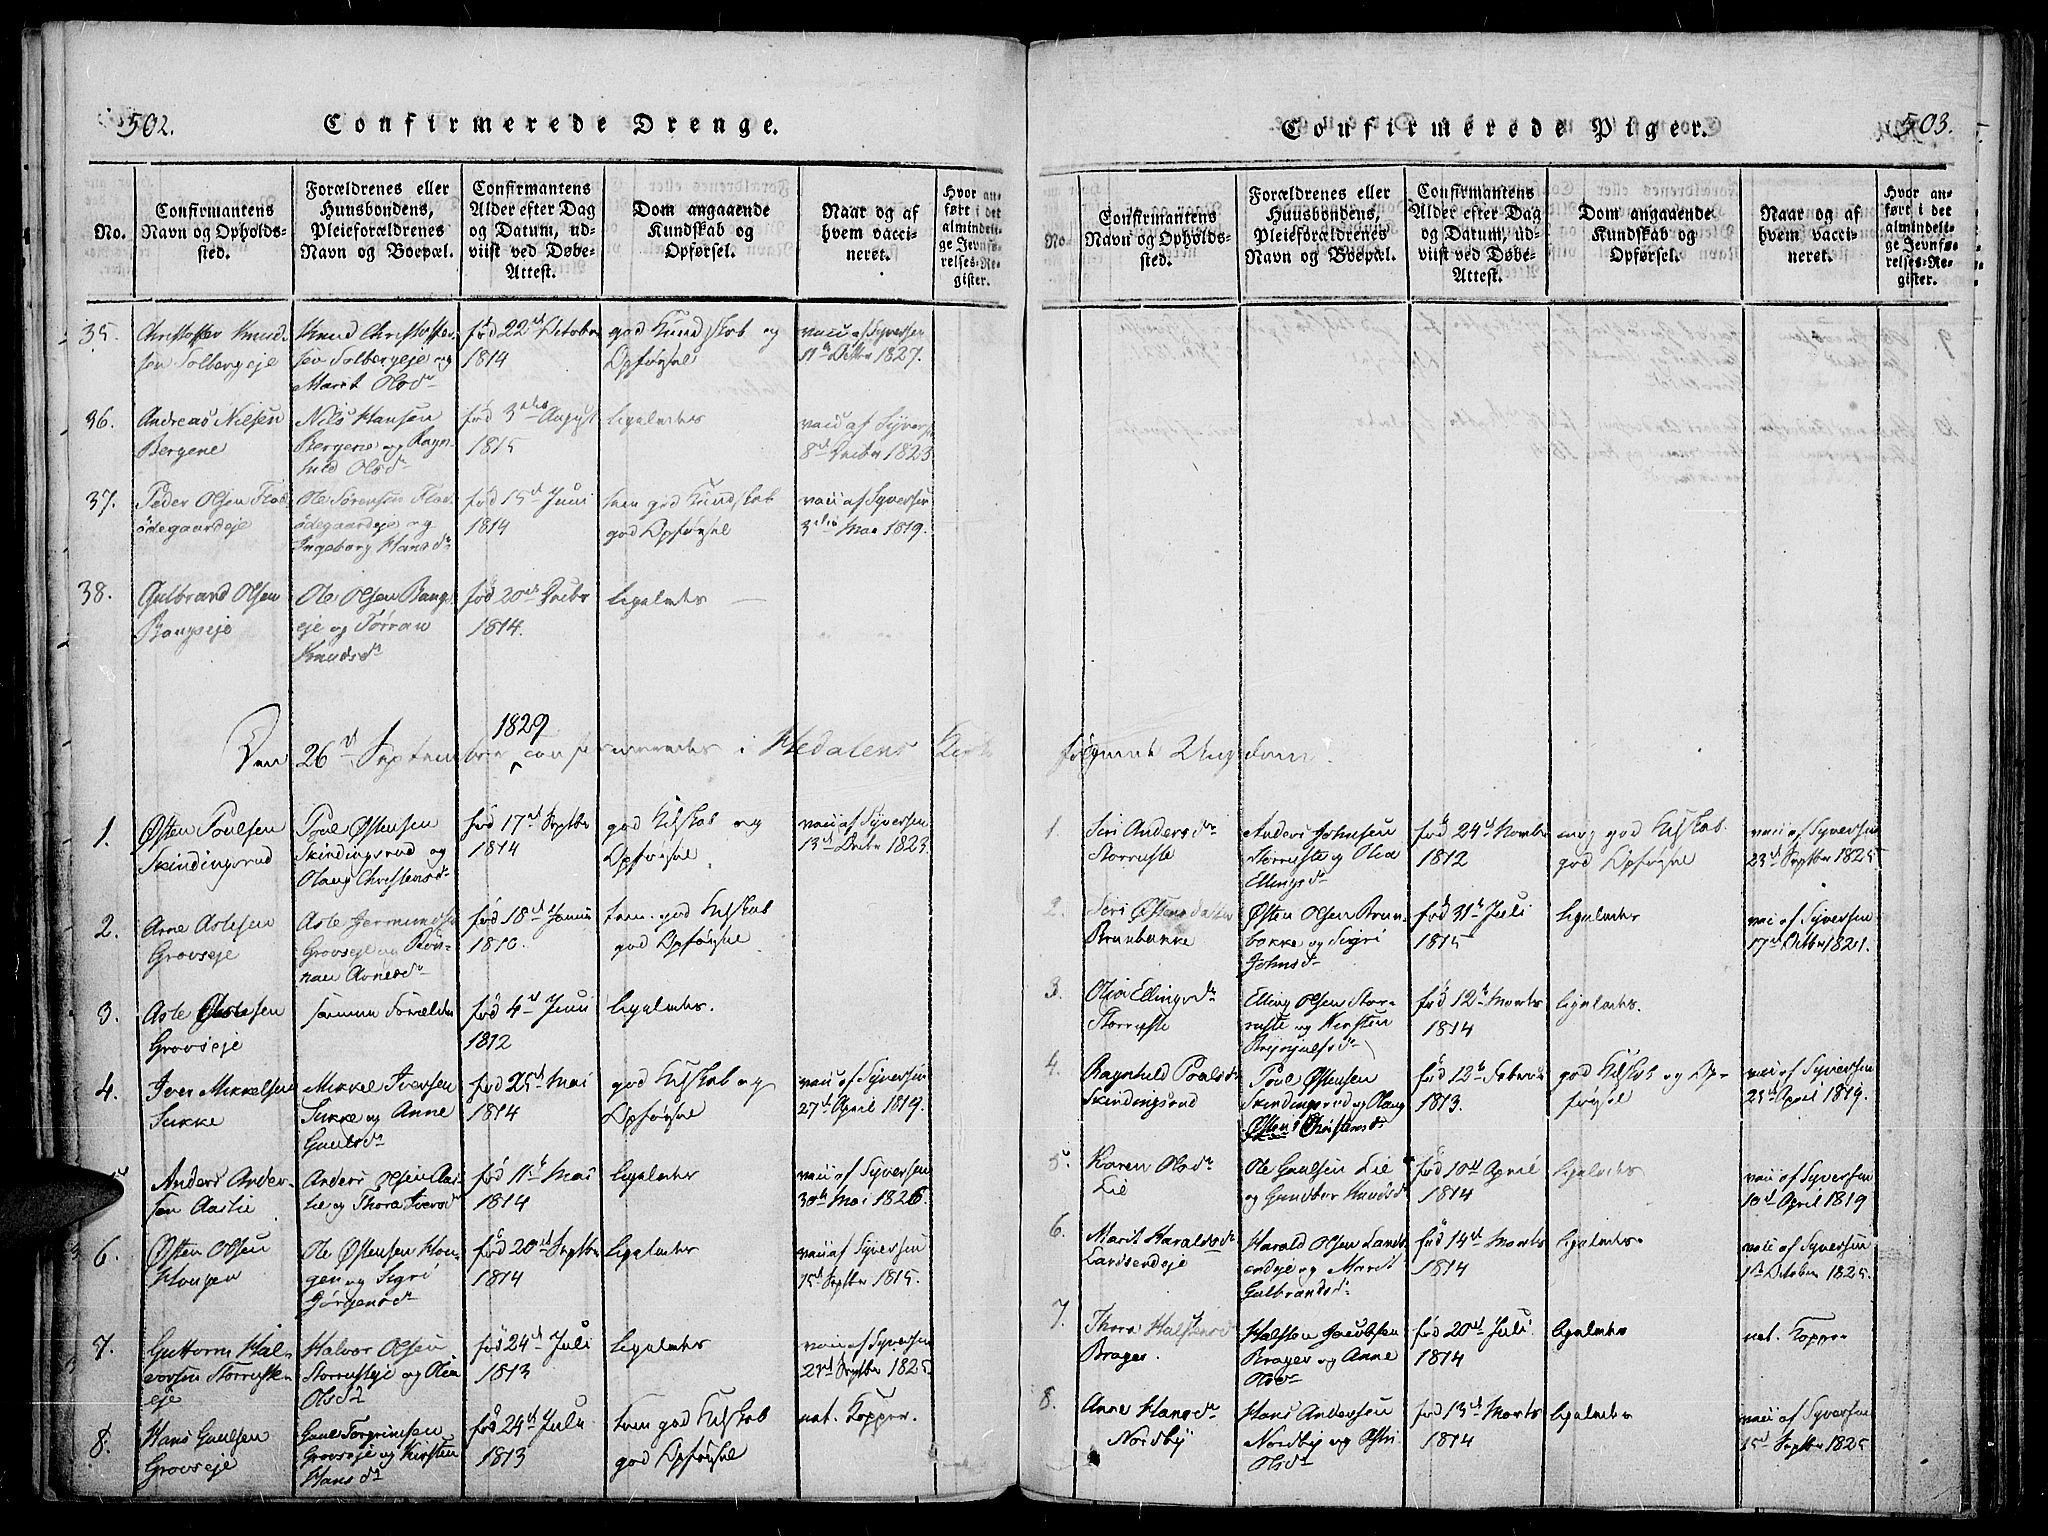 502.
Confirmerede Drenge.
No.
Confirmantens Navn og Opholds-sted.
Forældrenes eller Huusbondens, Pleieforældrenes Navn og Boepæl.
Confirmantens Alder efter Dag og Datum, ud-viist ved Døbe-Attest.
Dom angaaende Kundskab og Opførsel.
Naar og af hvem vacci-neret.
Hvor an-ført i det almindeli-ge Jevnfø-relses-Re-gister.
35.
Christoffer Knud-
sen Solbergeje
Knud Christoffer-
sen Solbergeje og
Marit Olsdr
fød 22de October
1814
god Kundskab og
Opførsel
vacc af Syversen
11te Octbr 1827.
36.
Andreas Nilsen
Bergene
Nils Hansen
Bergene og Ragn-
hild Olsdr
fød 3die August
1815
ligeledes
vacc af Syversen
8de Decbr 1823.
37.
Peder Olsen
ødegaardeje
Ole Sørensen
ødegaardeje og
Ingeborg Hansdr
fød 15de Juni
1814
tem god Kundskab
god Opførsel
vacc af Syversen
3die Mai 1819.
38.
Gulbrand Olsen
Bangseje
Ole Olsen Bangs-
eje og Torran
Knudsdr
fød 20de Decbr
1814.
ligeledes
Den 26de September 1829 confirmeredes i Hedalens Kirke
1.
Østen Poulsen
Skindingsrud
Poul Østensen
Skindingsrud og
Olaug Christensdr
fød 17de Septbr
1814
god Kdskab og
Opførsel
vacc af Syversen
13de Decbr 1823.
2.
Arne Aslesen
Grovseje
Asle
Grovseje og Rön-
nau Arnesdr
fød 18de
1810.
tem. god Kdskab
god Opførsel
3.
Asle Aslesen
Grovseje
samme Forældre
fød 4de Juni
1812
ligeledes.
4.
Iver Mikkelsen
Sukke
Mikkel Iversen
Sukke og Anne
Guulsdr
fød 25de Mai
1814
god Kdskab og
Opførsel
vacc af Syversen
27de April 1819.
5
Anders Ander-
sen Aaslie
Anders Olsen Aas-
lie og Thora Iversdr
fød 11te Mai
1814
ligeledes
vacc af Syversen
30te Mai 1826.
6.
Østen Olsen
Haugen
Ole Østensen Hau-
gen og Sigri
Jørgensdr
fød 20de Septbr
1814
ligeledes
vacc af Syversen
15de Septbr 1815.
7.
Guttorm Hal-
vorsen Storruste-
eje
Halvor Olsen
Storrusteje og Olia
Olsdr
fød 24de Juli
1813
ligeledes
vacc af Syversen
23de Septbr 1825
8.
Hans Guulsen
Grovseje
Guul Torgrimsen
Grovseje og Kirsten
Hansdr
fød 24de Juli
1813
tem god Kdskab
god Opførsel
nat. Kopper.
503.
Confirmerede Piger.
No.
Confirmantens Navn og Opholds-sted.
Forældrenes eller Huusbondens, Pleieforældrenes Navn og Boepæl.
Confirmantens Alder efter Dag og Datum, ud-viist ved Døbe-Attest.
Dom angaaende Kundskab og Opførsel.
Naar og af hvem vacci-neret.
Hvor an-ført i det almindeli-ge Jevnfø-relses-Re-gister.
følgende Ungdom.
1.
Siri Andersdr
Storruste
Anders Johnsen
Storruste og Olia
Ellingsdr
fød 24de Novbr
1812
meg god Kdskab.
god Opførsel
vacc af Syversen
23de Septbr 1825
2.
Siri Østensdatter
Brunbakke
Østen Olsen Brun-
bakke og Sigri
Johnsdr
fød 31te Juli
1815
ligeledes
vacc af Syversen
17de Octbr 1821.
3.
Olia Ellingsdr
Storruste
Elling Olsen Stor-
ruste og Kirsten
Brynjulfsdr
fød 12te Marts
1814
ligeledes.
4.
Ragnhild Poulsdr
Skindingsrud
Poul Østensen
Skindingsrud og Olaug
Christensdr
fød 12te Febr
1813.
god Kdskab og Op-
førsel
vacc af Syversen
23de April 1819.
5.
Karen Olsdr
Lie
Ole Guulsen Lie
og Gundbor Knudsdr
fød 10de April
1814
ligeledes
vacc af Syversen
10de April 1819
6.
Marit Haraldsdr
Landsendeje
Harald Olsen Lands-
endeje og Marit
Gulbrandsdr
fød 14de Marts
1814
ligeledes.
vacc af Syversen
1ste October 1825.
7.
Thora Halstensdr
Brager.
Halsten Jacobsen
Brager og Anne
Olsdr
fød 20de Juli
1814
ligeledes
nat. Kopper
8.
Anne Hansdr
Nordby
Hans Andersen
Nordby og Østri
Olsdr
fød 13de Marts
1814
ligeledes
vacc af Syversen
15de Septbr 1825